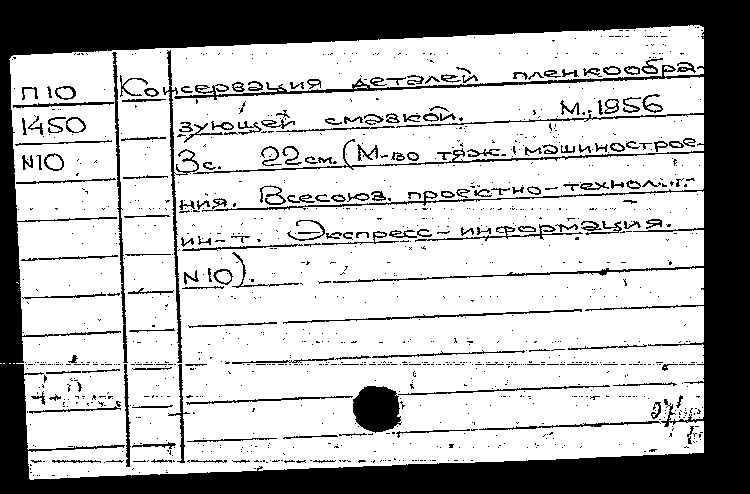 П10 Консервация деталей пленкообра-
1450 зующей смазкой. М., 1956
N10 3с. 22см. (М-во тяж. машинострое-
ния. Всесоюз. проектно-технол.
ин-т. Экспресс-информация.
N10).